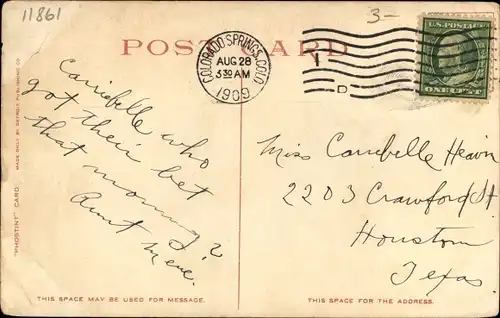 11861
3-
POST CARD
COLORADO SPRINGS, COLO.
AUG 28
530 AM
1909
1
D
U.S. POSTAGE
ONE CENT
Carribelle who
got their bet
that morning?
Aunt
Miss Carribelle
2203 Crawford St
Houston
Texas.
"PHOSTINT" CARD
MADE ONLY BY DETROIT PUBLISHING CO.
THIS SPACE MAY BE USED FOR MESSAGE.
THIS SPACE FOR THE ADDRESS.